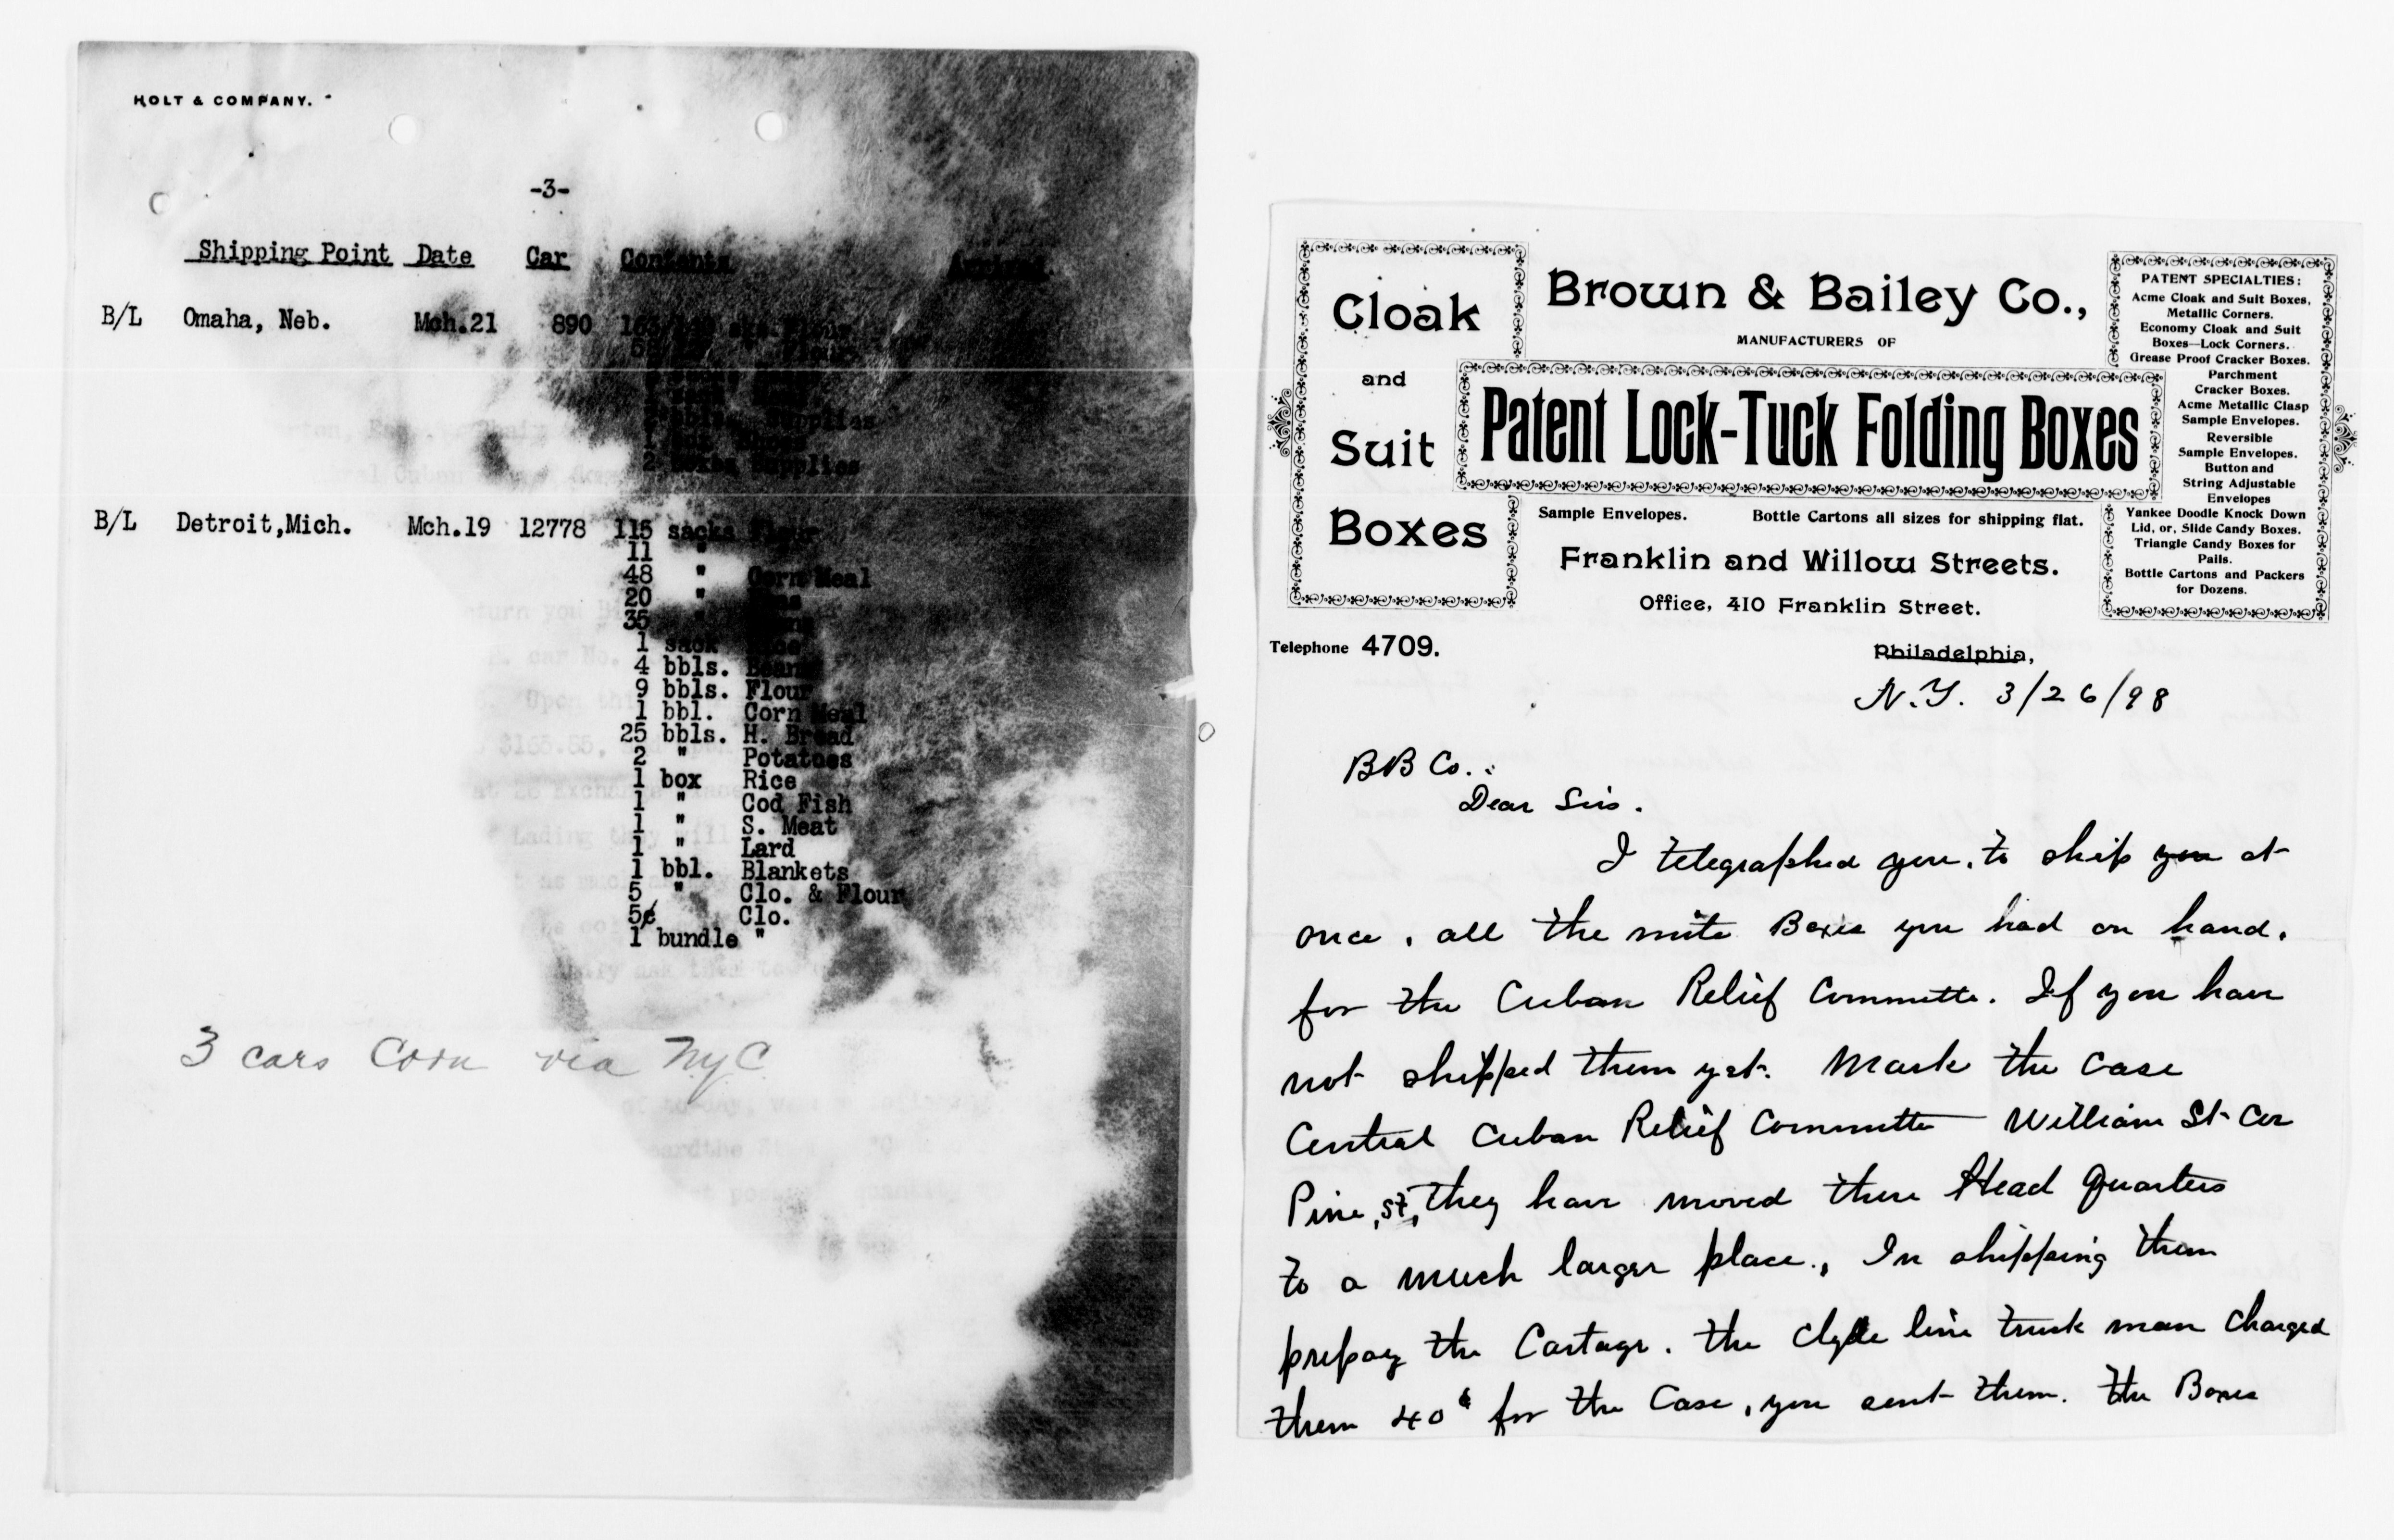 HOLT & COMPANY.
-3-
Shipping Point Date Car Contents Arrived.
B/L Omaha, Neb. Mch.21 890 Flour
Flour
Supplies
2 boxes Supplies
B/L Detroit,Mich. Mch.19 12778 115 sacks Flour
11 "
48 " Corn Meal
20 "
35 "
1 sack Rice
4 bbls. Beans
9 bbls. Flour
1 bbl. Corn Meal
25 bbls. H. Bread
2 " Potatoes
1 box Rice
1 " Cod Fish
1 " S. Meat
1 " Lard
1 bbl. Blankets
5 " Clo. & Flour
5¢ Clo.
1 bundle "
3 cars Corn via NYC
Cloak
and
Suit
Boxes
Brown & Bailey Co.,
MANUFACTURERS OF
Patent Lock-Tuck Folding Boxes
Sample Envelopes. Bottle Cartons all sizes for shipping flat.
Franklin and Willow Streets.
Office, 410 Franklin Street.
PATENT SPECIALTIES:
Acme Cloak and Suit Boxes,
Metallic Corners.
Economy Cloak and Suit
Boxes—Lock Corners.
Grease Proof Cracker Boxes.
Parchment
Cracker Boxes.
Acme Metallic Clasp
Sample Envelopes.
Reversible
Sample Envelopes.
Button and
String Adjustable
Envelopes
Yankee Doodle Knock Down
Lid, or, Slide Candy Boxes.
Triangle Candy Boxes for
Pails.
Bottle Cartons and Packers
for Dozens.
Telephone 4709.
Philadelphia,
N.Y. 3/26/98
BB Co.:
Dear Sirs.
I telegraphed you, to ship you at
once, all the mite Boxes you had on hand.
for the Cuban Relief Committe. If you have
not shipped them yet. Mark the Case
Central Cuban Relief Committe William St Cor
Pine, St, they have moved there Head Quarters
to a much larger place., In shipping them
prepay the Cartage. the Clyde line truck man charged
them 40¢ for the Case, you sent them. the Boxes